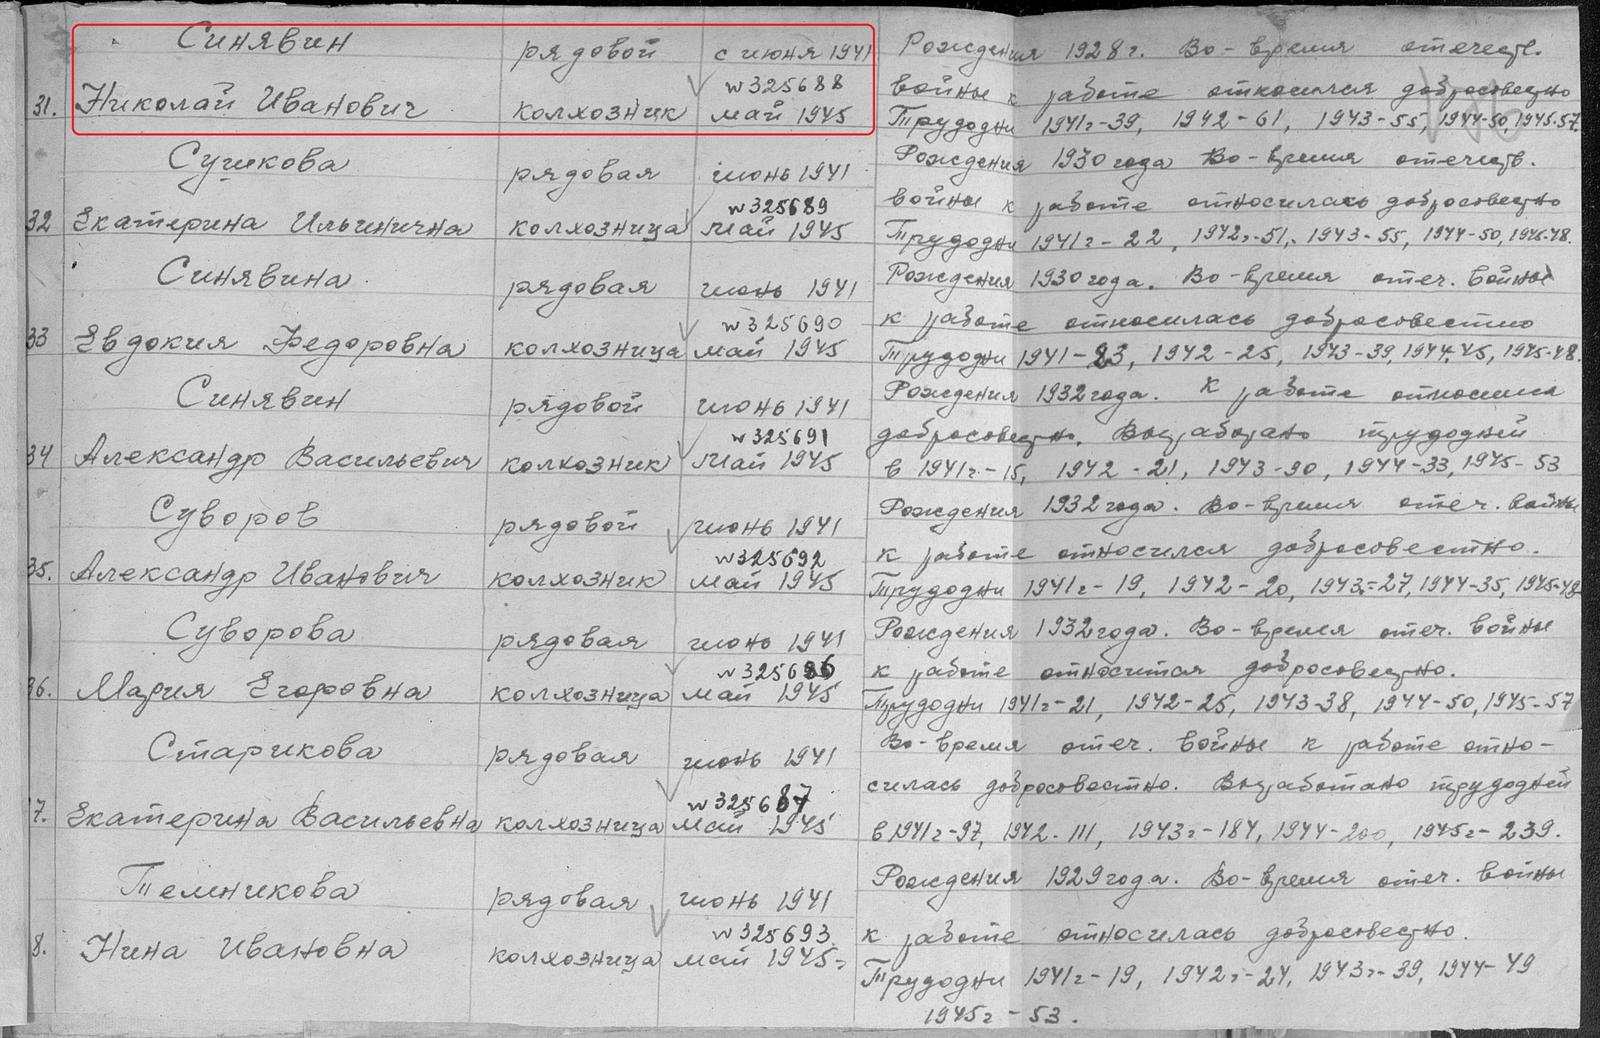 Синявин рядовой с июня 1941 Рождения 1928 г. Во-время отечеств.
№325688 войны к работе относился добросовестно
31. Николай Иванович колхозник май 1945 Трудодни 1941г-39, 1942-61, 1943-55, 1944-50, 1945-57.
Сушкова рядовая июнь 1941 Рождения 1930 года Во-время отечеств.
№325689 войны к работе относилась добросовестно
32 Екатерина Ильинична колхозница май 1945 Трудодни 1941г-22, 1942г-51, 1943-55, 1944-50, 1945-48.
Синявина рядовая июнь 1941 Рождения 1930 года. Во-время отеч. войны
№325690 к работе относилась добросовестно
33 Евдокия Федоровна колхозница май 1945 Трудодни 1941-23, 1942-25, 1943-39, 1944-45, 1945-48.
Синявин рядовой июнь 1941 Рождения 1932 года. К работе относился
№325691 добросовестно. Выработано трудодней
34 Александр Васильевич колхозник май 1945 в 1941г-15, 1942-21, 1943-90, 1944-33, 1945-53
Суворов рядовой июнь 1941 Рождения 1932 года. Во-время отеч. войны
№325692 к работе относился добросовестно.
35. Александр Иванович колхозник май 1945 Трудодни 1941г-19, 1942-20, 1943г-27, 1944-35, 1945-48
Суворова рядовая июнь 1941 Рождения 1932 года. Во-время отеч. войны
№325686 к работе относится добросовестно.
36. Мария Егоровна колхозница май 1945 Трудодни 1941г-21, 1942-25, 1943-38, 1944-50, 1945-57
Старикова рядовая июнь 1941 Во-время отеч. войны к работе отно-
№325687 силась добросовестно. Выработано трудодней
7. Екатерина Васильевна колхозница май 1945 в 1941г-97, 1942-111, 1943г-184, 1944-200, 1945г-239.
Темникова рядовая июнь 1941 Рождения 1929 года. Во-время отеч. войны
№325693 к работе относилась добросовестно.
8. Нина Ивановна колхозница май 1945г Трудодни 1941г-19, 1942г-24, 1943г-39, 1944-49
1945г-53.